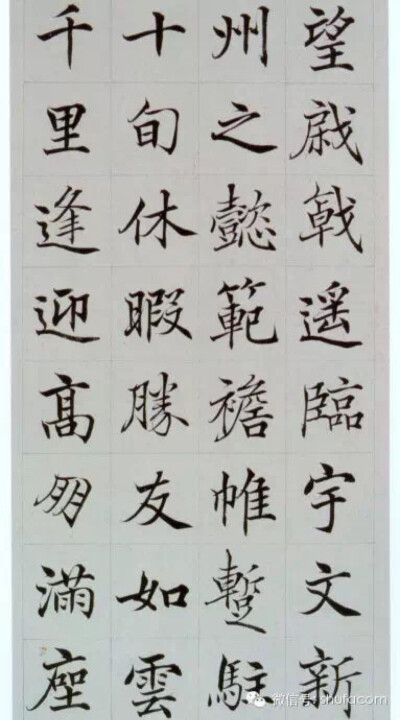 望戚戟遥臨宇文新
州之懿範襜帷蹔駐
十旬休暇勝友如雲
千里逢迎髙朋滿座
微信号: shufacom